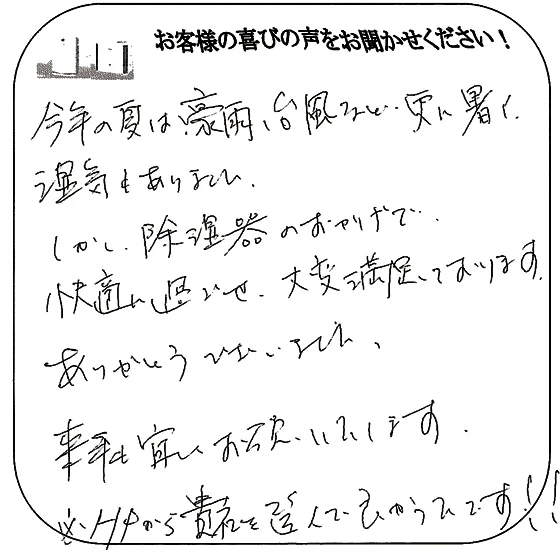 お客様の喜びの声をお聞かせください！
今年の夏は豪雨、台風など・更に暑く、
湿気もありました。
しかし、除湿器のおかげで、
快適に過ごせ、大変満足しております。
ありがとうございました。
来年も宜しくお願いいたします。
※HPから貴社を選んで良かったです!!